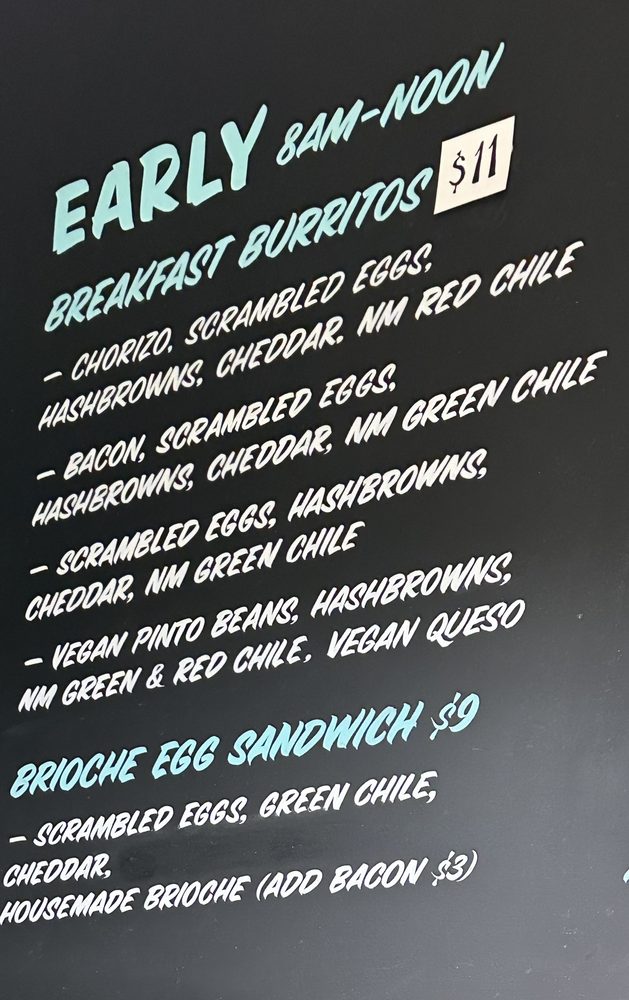 EARLY 8AM-NOON
BREAKFAST BURRITOS $11
- CHORIZO, SCRAMBLED EGGS,
HASHBROWNS, CHEDDAR, NM RED CHILE
- BACON, SCRAMBLED EGGS,
HASHBROWNS, CHEDDAR, NM GREEN CHILE
- SCRAMBLED EGGS, HASHBROWNS,
CHEDDAR, NM GREEN CHILE
- VEGAN PINTO BEANS, HASHBROWNS,
NM GREEN & RED CHILE, VEGAN QUESO
BRIOCHE EGG SANDWICH $9
- SCRAMBLED EGGS, GREEN CHILE,
CHEDDAR,
HOUSEMADE BRIOCHE (ADD BACON $3)